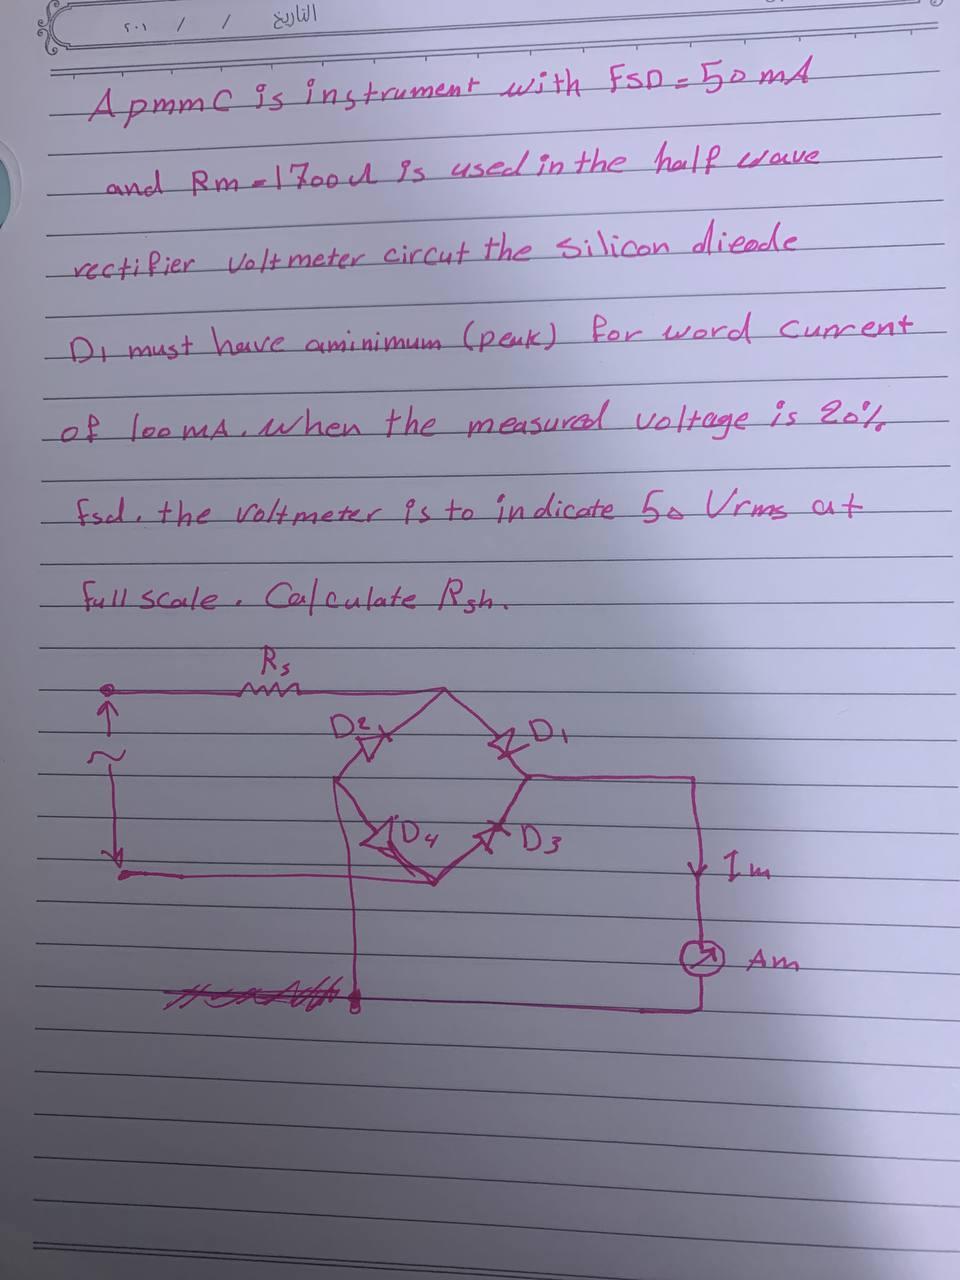 ٢٠١ / / التاريخ
A pmmC is instrument with FSD = 50 mA
and Rm = 1700 Ω is used in the half wave
rectifier voltmeter circut the silicon dieode
D1 must have aminimum (peak) for word current
of 100 MA. when the measured voltage is 20%
fsd. the voltmeter is to indicate 50 Vrms at
full scale. Calculate Rsh.
Rs
D2 D1
~
D4 D3
Im
Am